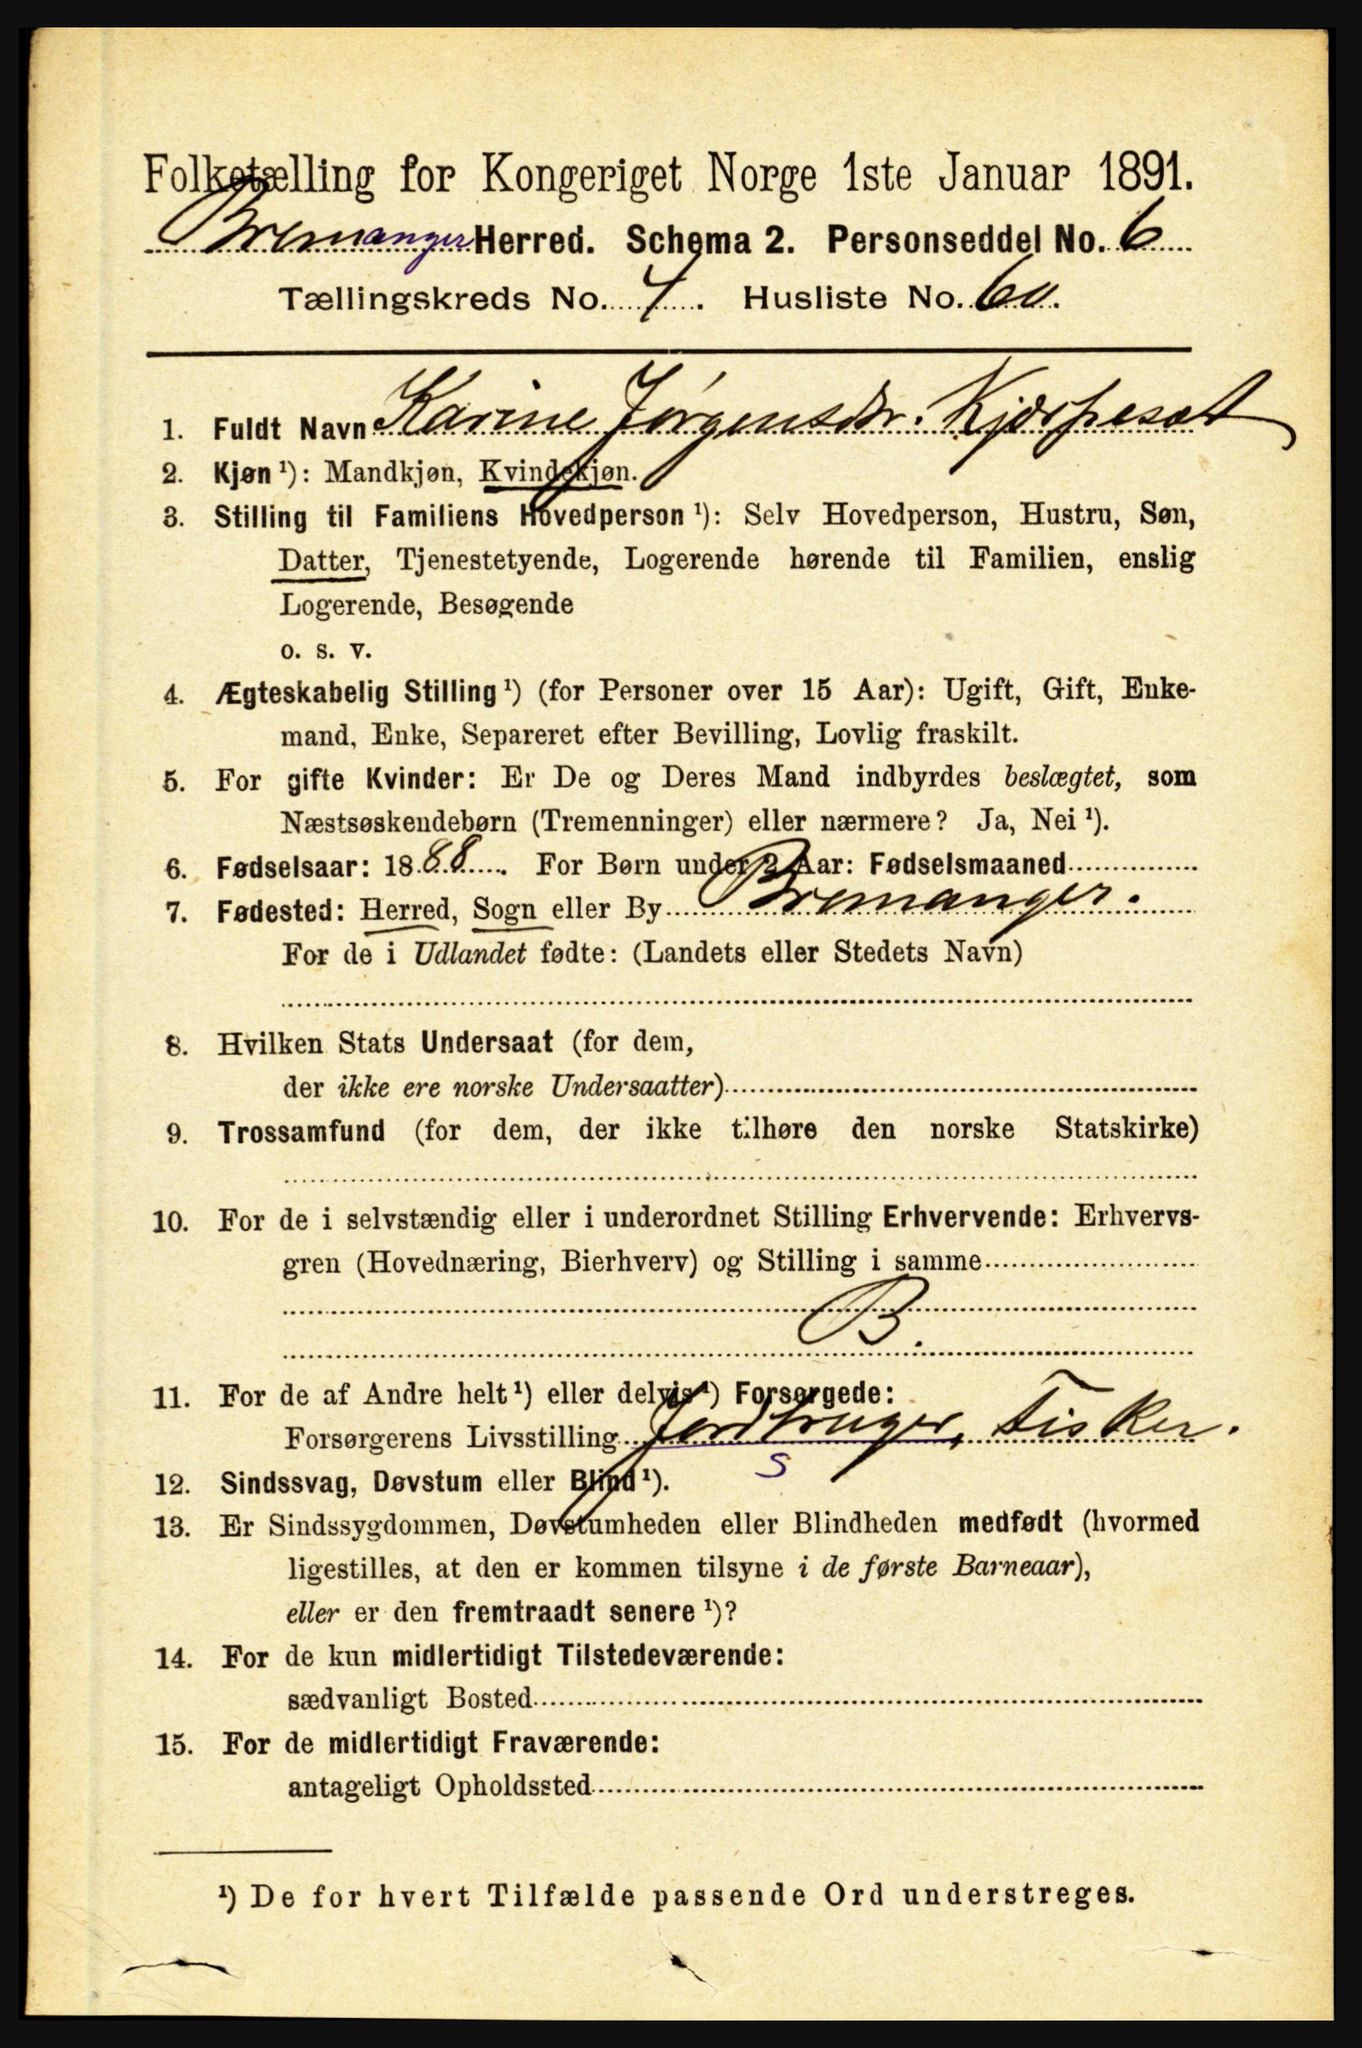 Folketælling for Kongeriget Norge 1ste Januar 1891.
Bremanger Herred. Schema 2. Personseddel No. 6
Tællingskreds No. 4. Husliste No. 60.
1. Fuldt Navn Karine Jørgensdtr. Kjerpesæt
2. Kjøn ¹): Mandkjøn, Kvindekjøn.
3. Stilling til Familiens Hovedperson ¹): Selv Hovedperson, Hustru, Søn,
Datter, Tjenestetyende, Logerende hørende til Familien, enslig
Logerende, Besøgende
o. s. v.
4. Ægteskabelig Stilling ¹) (for Personer over 15 Aar): Ugift, Gift, Enke-
mand, Enke, Separeret efter Bevilling, Lovlig fraskilt.
5. For gifte Kvinder: Er De og Deres Mand indbyrdes beslægtet, som
Næstsøskendebørn (Tremenninger) eller nærmere? Ja, Nei ¹).
6. Fødselsaar: 1888. For Børn under 2 Aar: Fødselsmaaned
7. Fødested: Herred, Sogn eller By Bremanger.
For de i Udlandet fødte: (Landets eller Stedets Navn)
8. Hvilken Stats Undersaat (for dem,
der ikke ere norske Undersaatter)
9. Trossamfund (for dem, der ikke tilhøre den norske Statskirke)
10. For de i selvstændig eller i underordnet Stilling Erhvervende: Erhvervs-
gren (Hovednæring, Bierhverv) og Stilling i samme
B.
11. For de af Andre helt ¹) eller delvis ¹) Forsørgede:
Forsørgerens Livsstilling Jordbruger, Fisker.
S
12. Sindssvag, Døvstum eller Blind ¹).
13. Er Sindssygdommen, Døvstumheden eller Blindheden medfødt (hvormed
ligestilles, at den er kommen tilsyne i de første Barneaar),
eller er den fremtraadt senere ¹)?
14. For de kun midlertidigt Tilstedeværende:
sædvanligt Bosted
15. For de midlertidigt Fraværende:
antageligt Opholdssted
¹) De for hvert Tilfælde passende Ord understreges.